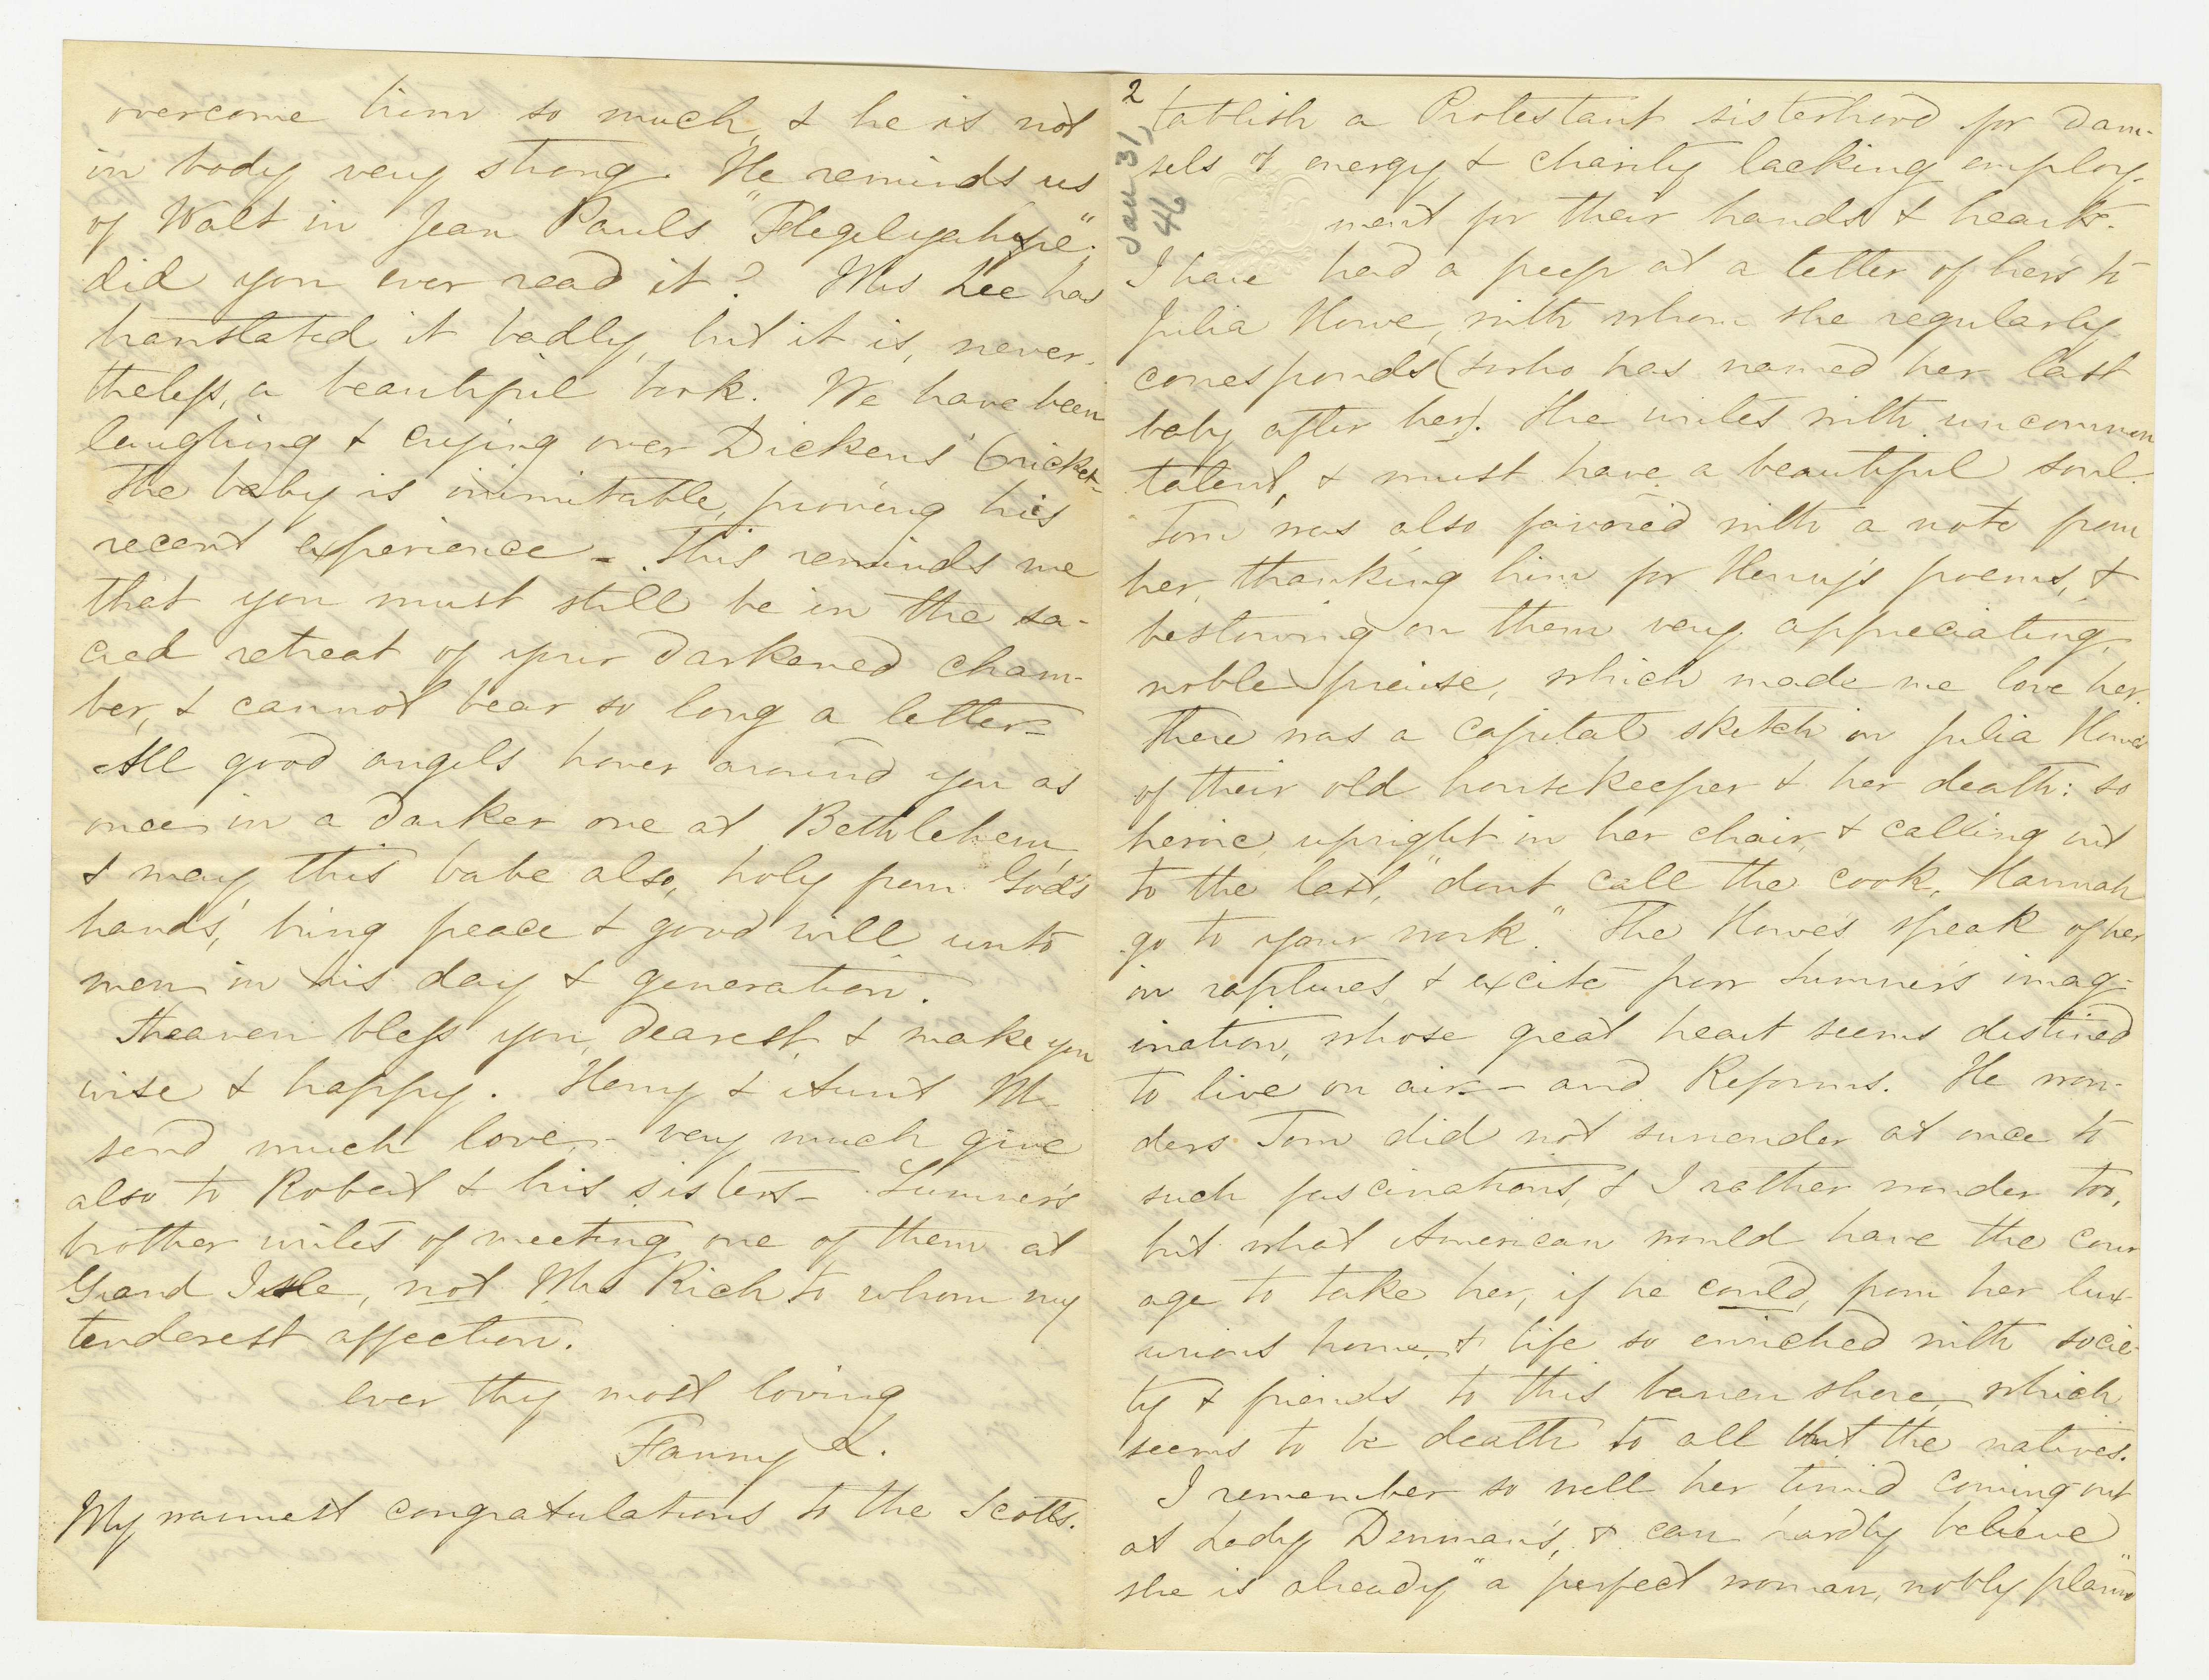 overcome him so much, & he is not
in body very strong. He reminds us
of Walt in Jean Pauls "Flegeljahre".
did you ever read it? Mrs Lee has
translated it badly, but it is, never-
theless, a beautiful book. We have been
laughing & crying over Dickens' Cricket-
The baby is inimitable, proving his
recent experience - This reminds me
that you must still be in the sa-
cred retreat of your darkened cham-
ber, & cannot bear so long a letter-
All good angels hover around you as
once in a darker one at Bethlehem,
& may this babe also, holy from God's
hands, bring peace & good will unto
men in his day & generation.
Heaven bless you, dearest, & make you
wise & happy. Henry & Aunt M
send much love - very much give
also to Robert & his sisters - Sumner's
brother writes of meeting one of them at
Grand Isle, not Mrs Rich to whom my
tenderest affection.
ever thy most loving
Fanny L.
My warmest congratulations to the Scotts.
2
Jan 31,
46
tablish a Protestant sisterhood for dam-
sels of energy & charity lacking employ-
ment for their hands & hearts.
I have had a peep at a letter of hers to
Julia Howe, with whom she regularly
corresponds (who has named her last
baby after her). She writes with uncommon
talent, & must have a beautiful soul.
Tom was also favored with a note from
her, thanking him for Henry's poems, &
bestowing on them very appreciating,
noble praise, which made me love her.
There was a capital sketch in Julia Howe's
of their old housekeeper & her death: so
heroic, upright in her chair, & calling out
to the last, "dont call the cook, Hannah
go to your work." The Howes speak of her
in raptures & excite poor Sumner's imag-
ination, whose great heart seems destined
to live on air - and Reforms. He won-
ders Tom did not surrender at once to
such fascinations, & I rather wonder too,
but what American would have the cour
age to take her, if he could, from her lux-
urious home, & life so enriched with socie-
ty & friends to this barren shore, which
seems to be death to all but the natives.
I remember so well her timid coming out
at Lady Denman's, & can hardly believe
she is already "a perfect woman, nobly plann'd"